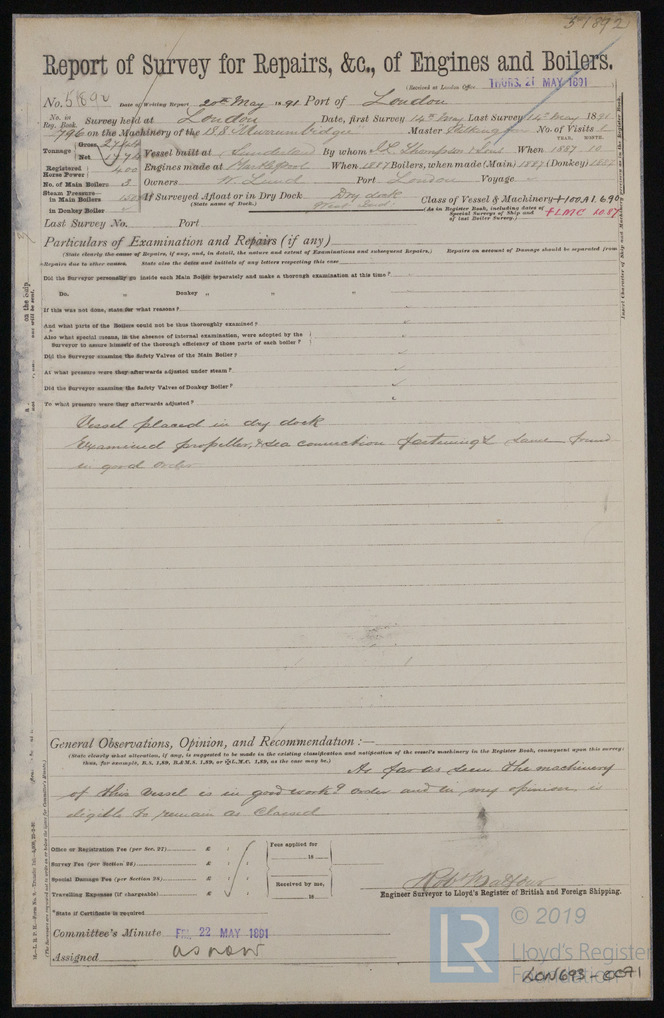 51892
Report of Survey for Repairs, &c., of Engines and Boilers.
(Received at London Office THURS. 21 MAY 1891)
No. 51892 Date of Writing Report 20th May 1891 Port of London
No. in Reg. Book. Survey held at London Date, first Survey 14th May Last Survey 14th May 1891
796 on the Machinery of the ISS Murrumbidgee Master No. of Visits 1
YEAR. MONTH.
Tonnage Gross Net
Vessel built at Sunderland By whom J.L. Thompson & Sons When 1887 10
Registered Horse Power 400 Engines made at Hartlepool When 1887 Boilers, when made (Main) 1887 (Donkey) 1887
No. of Main Boilers 3 Owners W. Lund Port London Voyage
Steam Pressure in Main Boilers in Donkey Boiler
If Surveyed Afloat or in Dry Dock Dry dock
(State name of Dock.) West India
Class of Vessel & Machinery +100A1. 6.90
(As in Register Book, including dates of Special Surveys of Ship and of last Boiler Survey.) +LMC 10.87
Last Survey No. Port
Particulars of Examination and Repairs (if any)
(State clearly the cause of Repairs, if any, and, in detail, the nature and extent of Examinations and subsequent Repairs.) Repairs on account of Damage should be separated from
Repairs due to other causes. State also the dates and initials of any letters respecting this case
Did the Surveyor personally go inside each Main Boiler separately and make a thorough examination at this time?
Do. „ Donkey „ „ „
If this was not done, state for what reasons?
And what parts of the Boilers could not be thus thoroughly examined?
Also what special means, in the absence of internal examination, were adopted by the
Surveyor to assure himself of the thorough efficiency of those parts of each boiler?
Did the Surveyor examine the Safety Valves of the Main Boiler?
At what pressure were they afterwards adjusted under steam?
Did the Surveyor examine the Safety Valves of Donkey Boiler?
To what pressure were they afterwards adjusted?
Vessel placed in dry dock
Examined propeller, & sea connection fastenings & same found
in good order
General Observations, Opinion, and Recommendation:—
(State clearly what alteration, if any, is suggested to be made in the existing classification and notification of the vessel's machinery in the Register Book, consequent upon this survey:
thus, for example, B.S. 1,89, B.&M.S. 1,89, or ✠L.M.C. 1,89, as the case may be.)
As far as seen the machinery
of this vessel is in good workg order and in my opinion is
eligible to remain as Classed
Office or Registration Fee (per Sec. 27) £ : :
Survey Fee (per Section 28) £ : :
Special Damage Fee (per Section 28) £ : :
Travelling Expenses (if chargeable) £ : :
Fees applied for
18
Received by me,
18
Robt Balfour
Engineer Surveyor to Lloyd's Register of British and Foreign Shipping.
*State if Certificate is required
Committee's Minute FRI. 22 MAY 1891
Assigned as now
LR
© 2019
Lloyd's Register
Foundation
LON693-0071